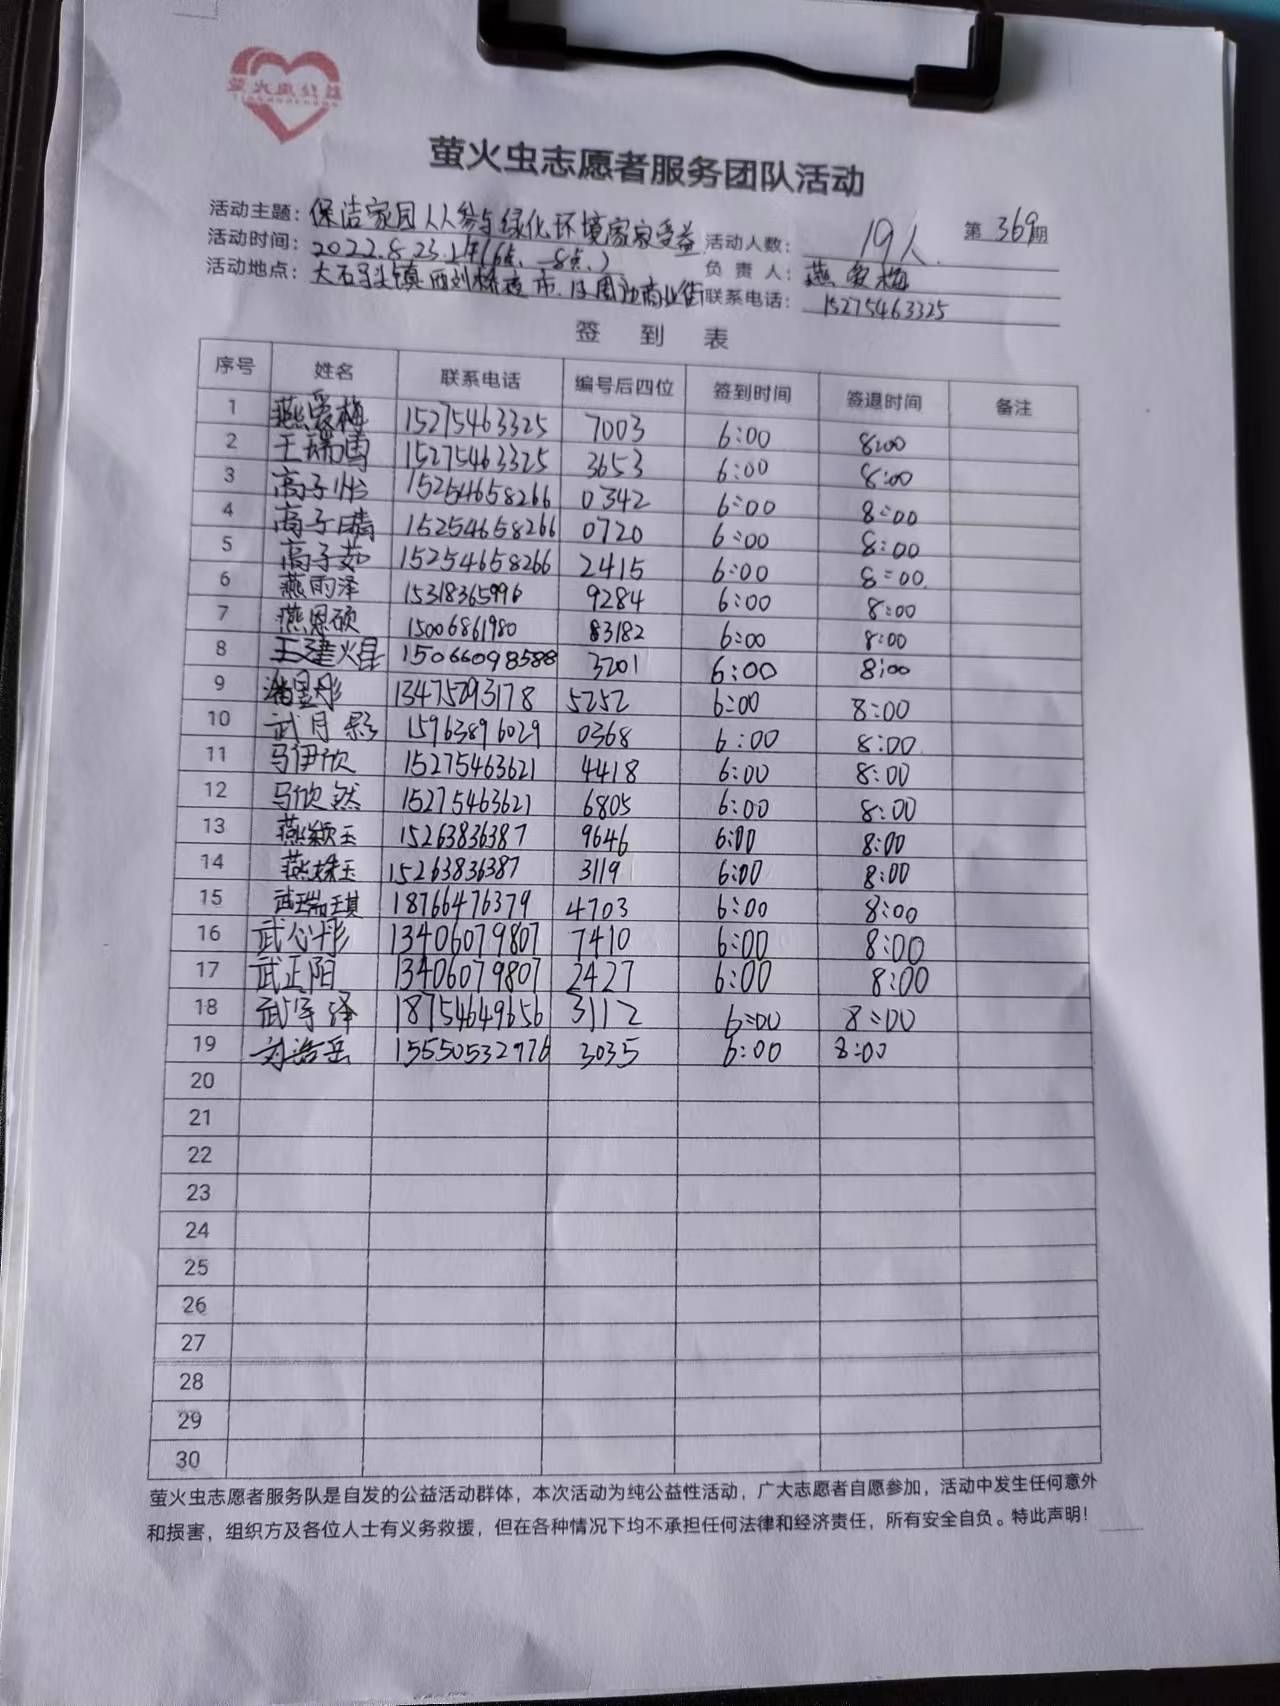 萤火虫志愿者服务团队活动
活动主题：保洁家园人人参与绿化环境家家受益 活动人数：19人 第369期
活动时间：2022.8.23.上午(6点—8点) 负责人：燕爱梅
活动地点：大石头镇西刘桥夜市及周边商业街 联系电话：15275463325
签到表
序号 姓名 联系电话 编号后四位 签到时间 签退时间 备注
1 燕爱梅 15275463325 7003 6:00 8:00
2 王瑞雪 15275463325 3653 6:00 8:00
3 高子怡 15254658266 0342 6:00 8:00
4 高子晴 15254658266 0720 6:00 8:00
5 高子茹 15254658266 2415 6:00 8:00
6 燕雨泽 15318365996 9284 6:00 8:00
7 燕恩硕 15006861980 83182 6:00 8:00
8 王建火星 15066098588 3201 6:00 8:00
9 潘昱彤 13475293178 5252 6:00 8:00
10 武月影 15963896029 0368 6:00 8:00
11 马伊欣 15275463621 4418 6:00 8:00
12 马欣然 15275463621 6805 6:00 8:00
13 燕颖玉 15263836387 9646 6:00 8:00
14 燕姝玉 15263836387 3119 6:00 8:00
15 武瑞琪 18766476379 4703 6:00 8:00
16 武心彤 13406079807 7410 6:00 8:00
17 武正阳 13406079807 2427 6:00 8:00
18 武宇泽 18754649656 3112 6:00 8:00
19 刘浩岳 15550532976 3035 6:00 8:00
20
21
22
23
24
25
26
27
28
29
30
萤火虫志愿者服务队是自发的公益活动群体，本次活动为纯公益性活动，广大志愿者自愿参加，活动中发生任何意外
和损害，组织方及各位人士有义务救援，但在各种情况下均不承担任何法律和经济责任，所有安全自负。特此声明！